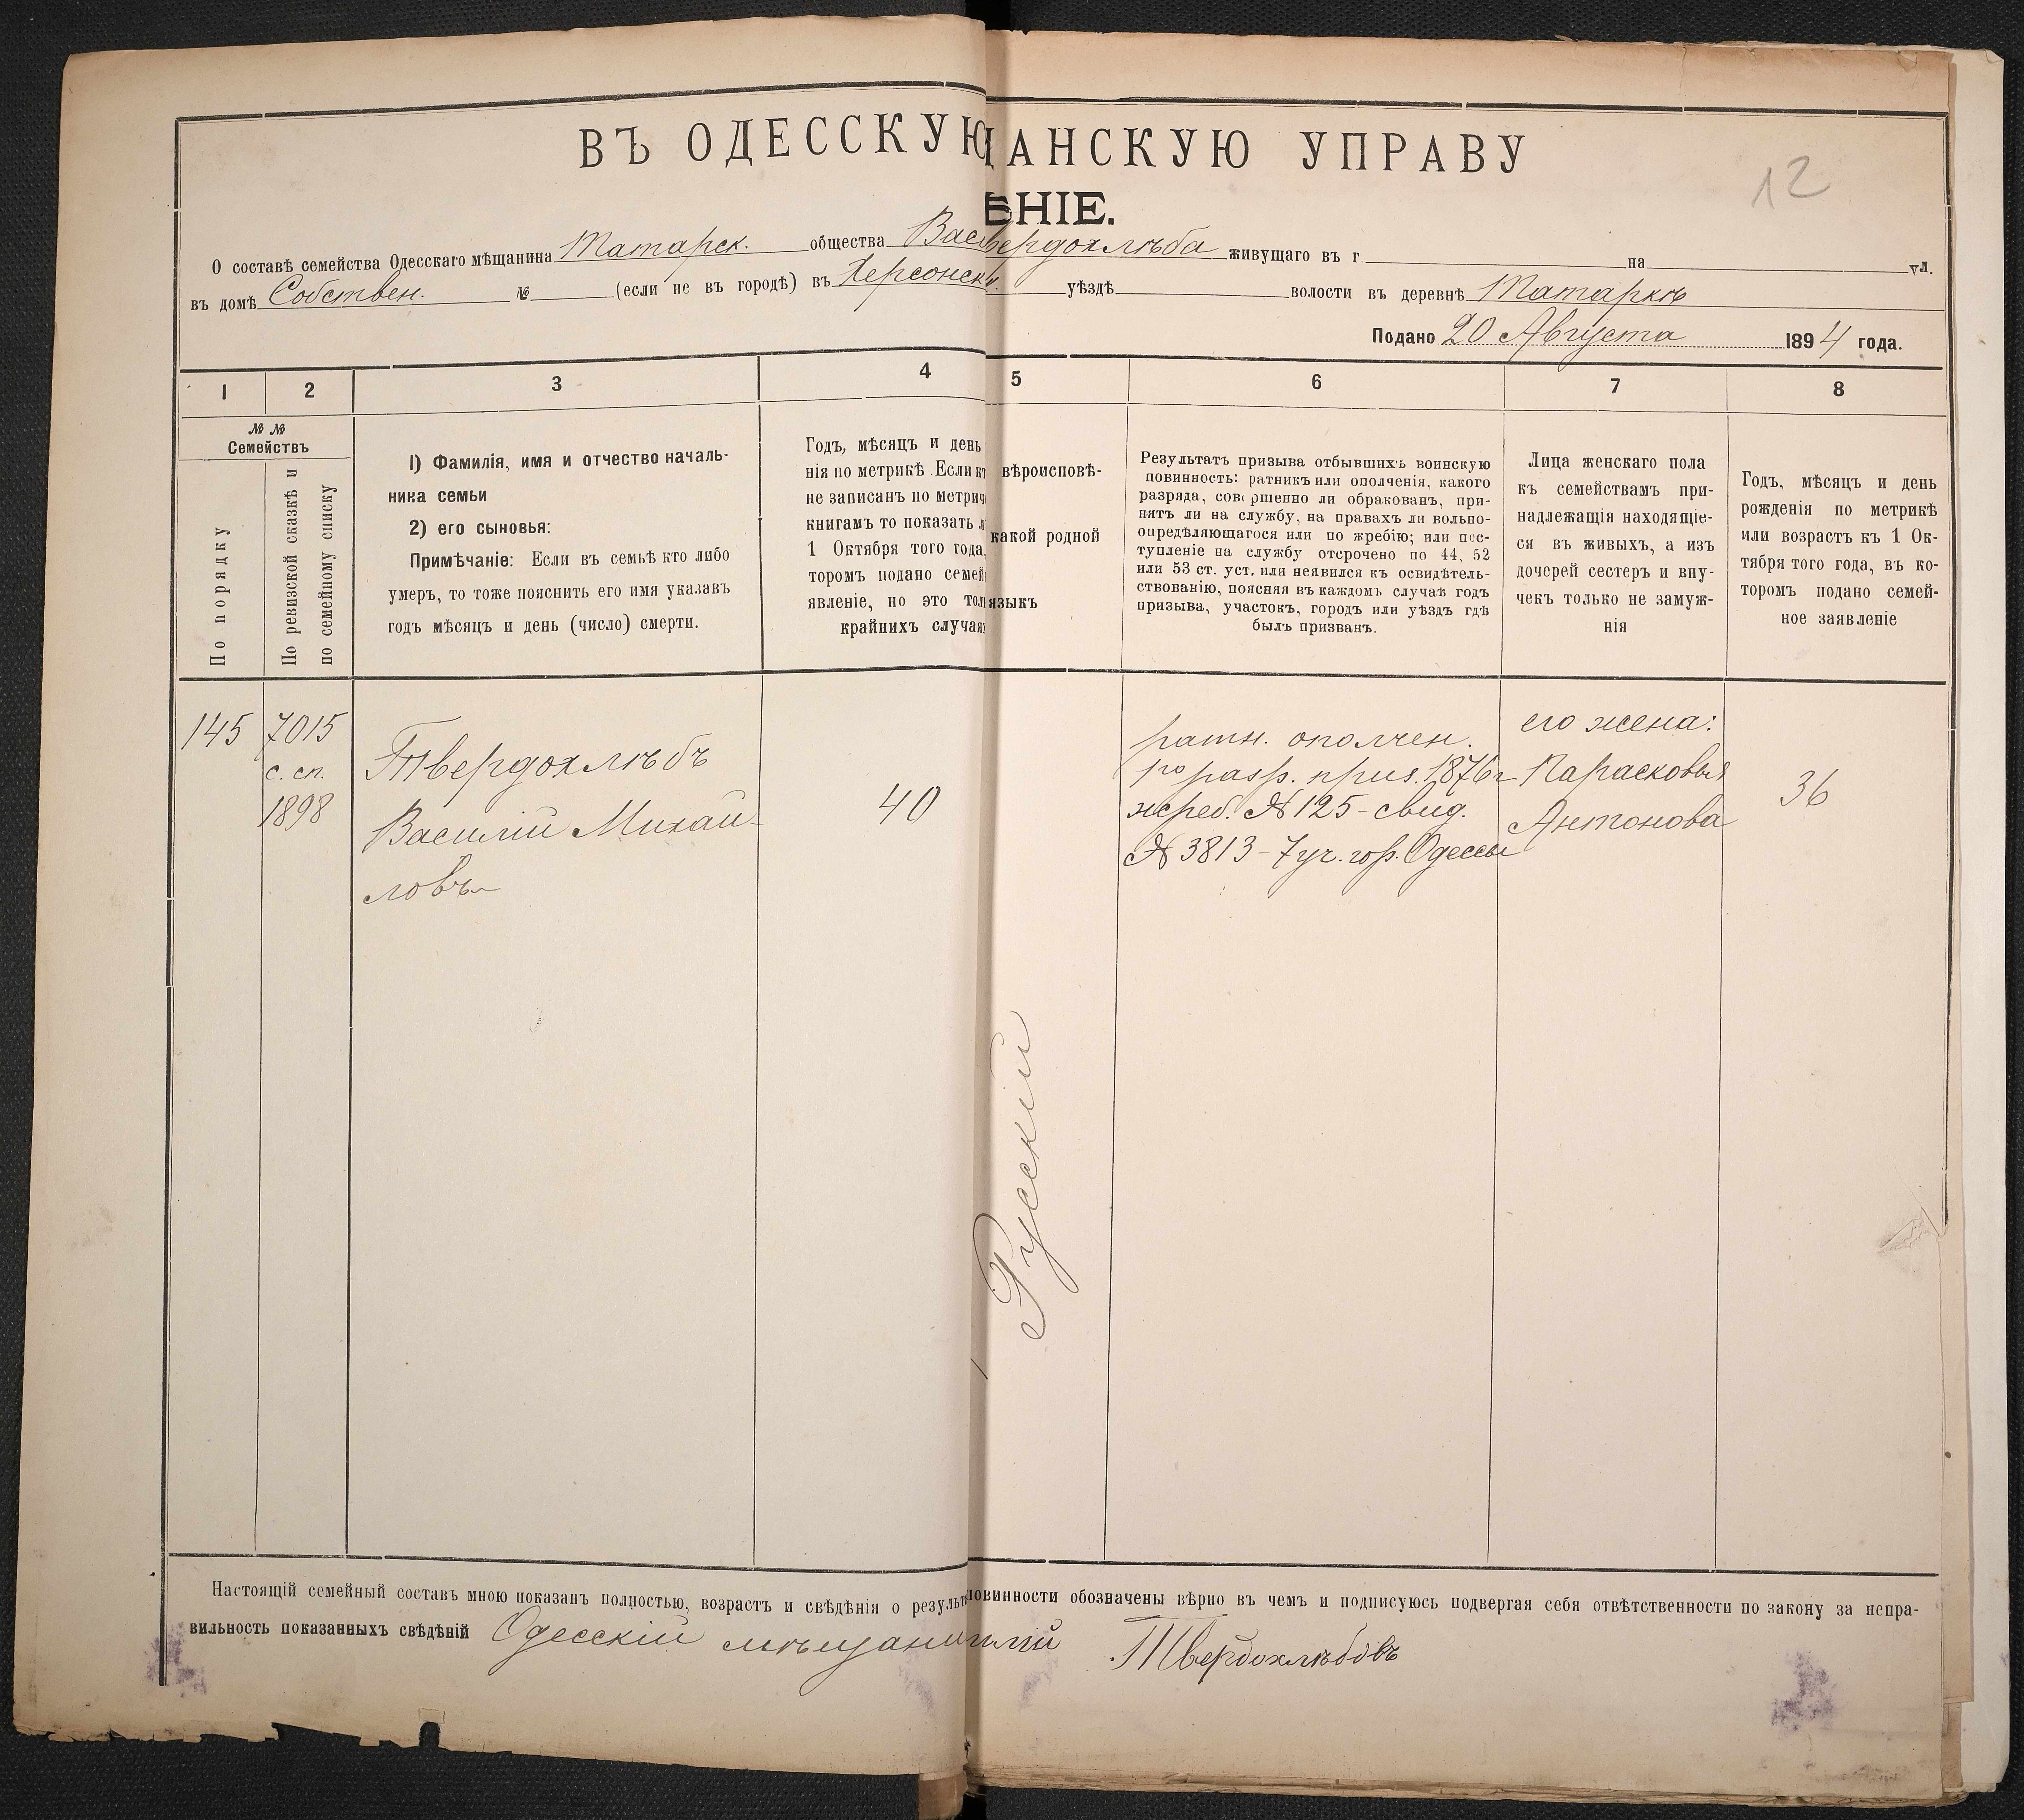 ВЪ ОДЕССКУЮ ЩАНСКУЮ УПРАВУ
12
ѢНІЕ.
О составѣ семейства Одесскаго мѣщанина Татарск. общества Вас вердохлѣба живущаго въ г. на ул.
въ домѣ Собствен. № (если не въ городѣ) въ Херсонск. уѣздѣ волости въ деревнѣ Татаркѣ
Подано 20 Августа 1894 года.
1 2 3 4 5 6 7 8
№ №
Семействъ
По порядку
По ревизской сказкѣ и
по семейному списку
1) Фамилія, имя и отчество началь-
ника семьи
2) его сыновья:
Примѣчаніе: Если въ семьѣ кто либо
умеръ, то тоже пояснить его имя указавъ
годъ мѣсяцъ и день (число) смерти.
Годъ, мѣсяцъ и день
нія по метрикѣ Если кт
не записанъ по метрич
книгамъ то показать л
1 Октября того года,
торомъ подано семей
явленіе, но это тол
крайнихъ случая
вѣроисповѣ-
какой родной
языкъ
Результатъ призыва отбывшихъ воинскую
повинность: ратникъ или ополченія, какого
разряда, совершенно ли обракованъ, при-
нятъ ли на службу, на правахъ ли вольно-
опредѣляющагося или по жребію; или пос-
тупленіе на службу отсрочено по 44, 52
или 53 ст. уст. или неявился къ освидѣтель-
ствованію, поясняя въ каждомъ случаѣ годъ
призыва, участокъ, городъ или уѣздъ гдѣ
былъ призванъ.
Лица женскаго пола
къ семействамъ при-
надлежащія находящіе-
ся въ живыхъ, а изъ
дочерей сестеръ и вну-
чекъ только не замуж-
нія
Годъ, мѣсяцъ и день
рожденія по метрикѣ
или возрастъ къ 1 Ок-
тября того года, въ ко-
торомъ подано семей-
ное заявленіе
145
7015
с. сп.
1898
Твердохлѣбъ
Василій Михай-
ловъ
40
Русскій
ратн. ополчен.
1го разр. приз. 1876 г
жреб. № 125 - свид.
№ 3813 - 7 уч. гор. Одессы
его жена:
Парасковья
Антонова
36
Настоящій семейный составъ мною показанъ полностью, возрастъ и свѣдѣнія о результ повинности обозначены вѣрно въ чемъ и подписуюсь подвергая себя отвѣтственности по закону за непра-
вильность показанныхъ свѣдѣній Одесскій мѣщани илій Твердохлѣбовъ